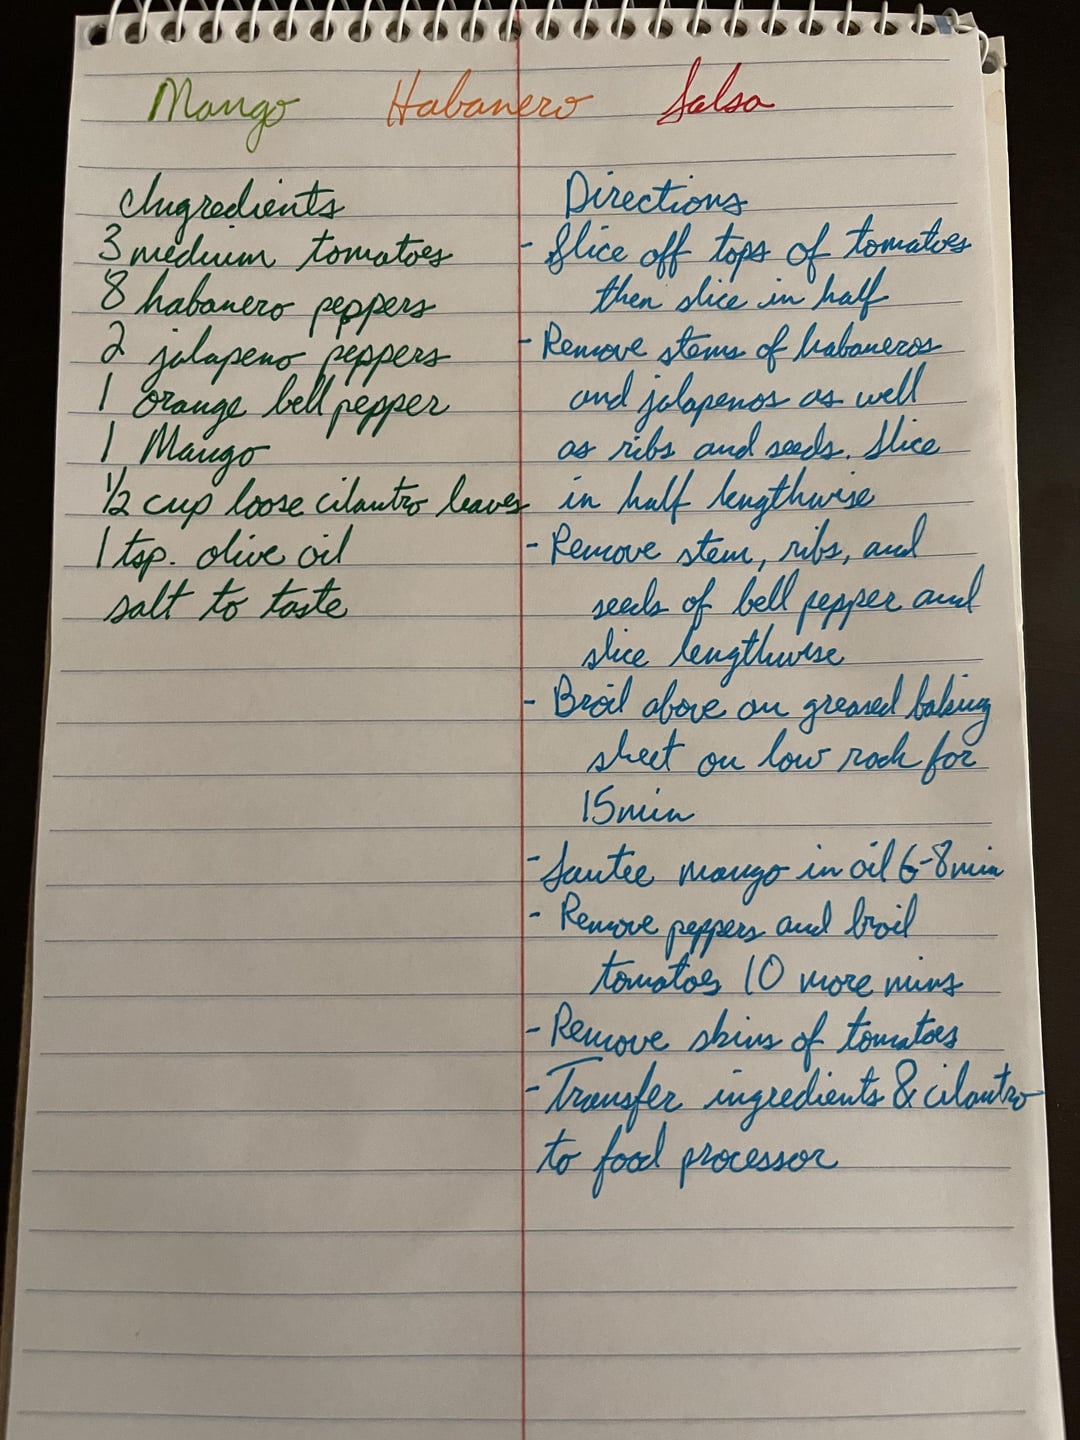 Mango Habanero Salsa
Ingredients
3 medium tomatoes
8 habanero peppers
2 jalapeno peppers
1 orange bell pepper
1 Mango
1/2 cup loose cilantro leaves
1 tsp. olive oil
salt to taste
Directions
- Slice off tops of tomatoes
then slice in half
- Remove stems of habaneros
and jalapenos as well
as ribs and seeds. Slice
in half lengthwise
- Remove stem, ribs, and
seeds of bell pepper and
slice lengthwise
- Broil above on greased baking
sheet on low rack for
15min
- Sautee mango in oil 6-8min
- Remove peppers and broil
tomatoes 10 more mins
- Remove skins of tomatoes
- Transfer ingredients & cilantro
to food processor